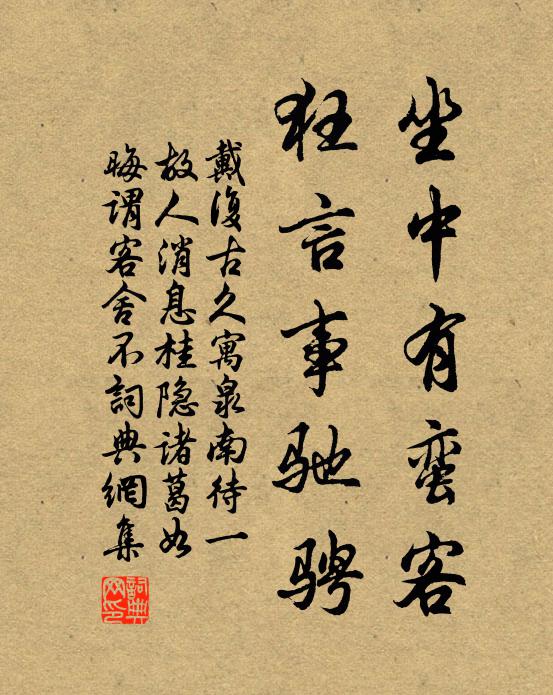 坐中有蛮客
狂言事驰骋
戴復古久寓泉南待一
故人消息桂隐诸葛如
晦谓客舍不詞典網集
詞典网印